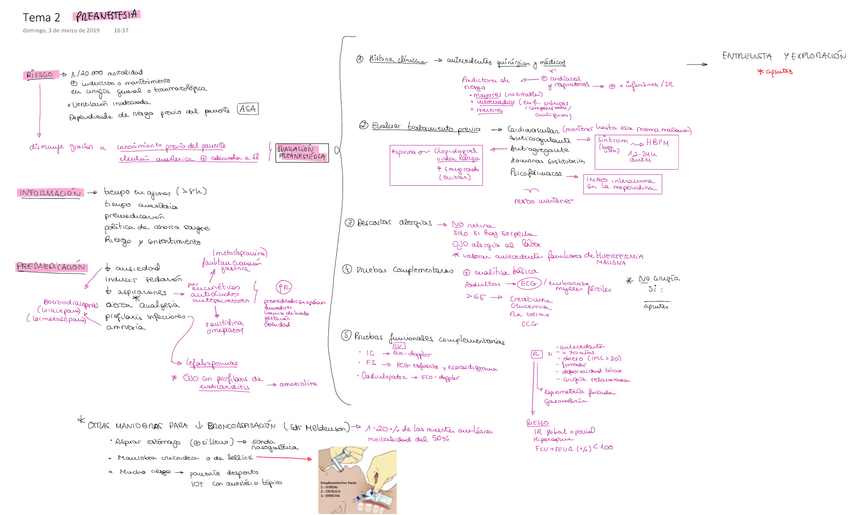 Tema 2 PREANESTESIA
domingo, 3 de marzo de 2019 16:37
RIESGO → 1/20.000 mortalidad
⊕ inductivo o mantenimiento
en cirugía general o traumatológica
Ventilación inadecuada
Dependiendo de riesgo previo del paciente ASA
disminuye gracias a conocimiento previo del paciente
elección anestésica ⊕ adecuada a él
EVALUACIÓN
PREANESTÉSICA
INFORMACIÓN → tiempo en ayunas (>8h)
tiempo anestesia
premedicación
política de ahorro sangre
Riesgo y consentimiento
PREMEDICACIÓN
↓ ansiedad
Inducir sedación
↓ aspiraciones
alerta analgesia
profilaxis infecciones
amnesia
Benzodiacepinas
(metoclopramida)
facilitan evacuación
gástrica
Procinéticos
antiácidos
antisecretores
ranitidina
omeprazol
FR
obesidad
→ Cefalosporinas
* OJO con profilaxis de
endocarditis → amoxicilina
① Historia clínica → antecedentes quirúrgicos y médicos
Predictores de
riesgo
⊕ cardiacos
y respiratorios → ⊕ infecciones / IR
mayores (inestables)
intermedios (enf. crónicas
menores
② Evaluar tratamiento previo → Cardiovascular (mantener hasta esa misma mañana)
Anticoagulante
Antiagregante
Hormonas sustitución
Psicofármacos
Sintrom → HBPM
12-24h
antes
Aspirina Clopidogrel
vida larga
IMAOS interacciona
con la meperidina
③ Descartar alergias → NO rutina
solo si hay sospecha
OJO alergia al látex
* valorar antecedentes familiares de HIPERTERMIA
MALIGNA
④ Pruebas complementarias ⊕ analítica básica
Adultos → ECG / embarazo
mujeres fértiles
>65 → Creatinina
Glucemia
Rx tórax
ECG
⑤ Pruebas funcionales complementarias
CV
IC → Eco-doppler
EI → ECG esfuerzo y ecocardiograma
Valvulopatía → Eco-doppler
R si:
- antecedente
- > 70 años
- obeso (IMC > 30)
- fumador
→ espirometría forzada
gasometría
RIESGO
IR global o parcial
Hipercapnia
→ ENTREVISTA Y EXPLORACIÓN
* apuntes
* NO CIRUGÍA
SI:
apuntes
* OTRAS MANIOBRAS PARA ↓ BRONCOASPIRACIÓN (Sdr Mendelson) → 1-20% de las muertes anestésica
morbilidad del 50%
Aspirar estómago → sonda
nasogástrica
Maniobra cricoidea o de Sellick
Mucho riesgo → paciente despierto
IOT con anestésico tópico
Desplazamiento hacia:
1.- DORSAL
2.- CEFÁLICO
3.- DERECHA